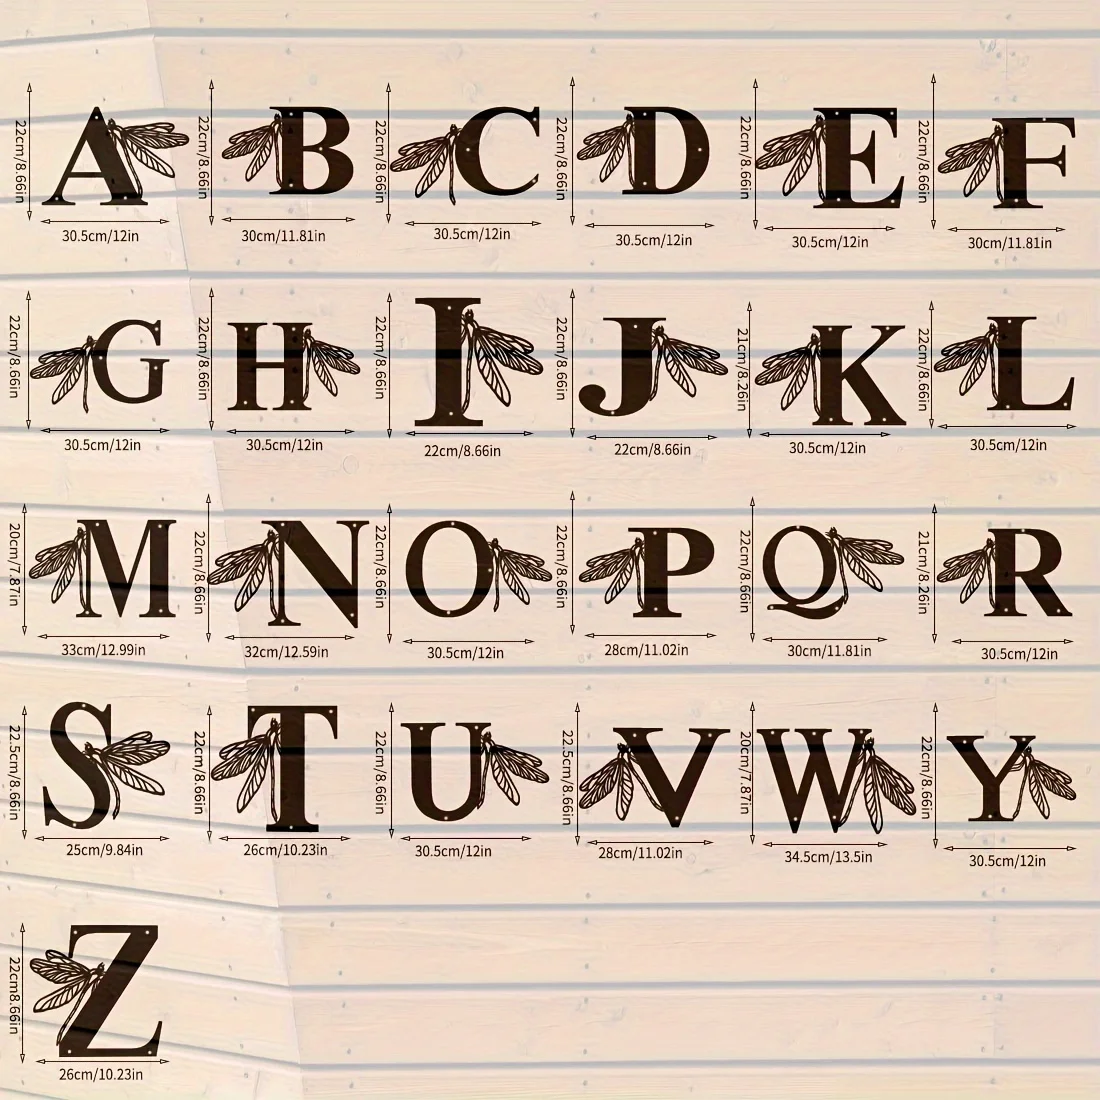 A B C D E F
22cm/8.66in 22cm/8.66in 22cm/8.66in 22cm/8.66in 22cm/8.66in 22cm/8.66in
30.5cm/12in 30cm/11.81in 30.5cm/12in 30.5cm/12in 30.5cm/12in 30cm/11.81in
G H I J K L
22cm/8.66in 22cm/8.66in 22cm/8.66in 22cm/8.66in 21cm/8.26in 22cm/8.66in
30.5cm/12in 30.5cm/12in 22cm/8.66in 22cm/8.66in 30.5cm/12in 30.5cm/12in
M N O P Q R
20cm/7.87in 22cm/8.66in 22cm/8.66in 22cm/8.66in 22cm/8.66in 21cm/8.26in
33cm/12.99in 32cm/12.59in 30.5cm/12in 28cm/11.02in 30cm/11.81in 30.5cm/12in
S T U V W Y
22.5cm/8.66in 22cm/8.66in 22cm/8.66in 22.5cm/8.66in 20cm/7.87in 22cm/8.66in
25cm/9.84in 26cm/10.23in 30.5cm/12in 28cm/11.02in 34.5cm/13.5in 30.5cm/12in
Z
22cm8.66in
26cm/10.23in